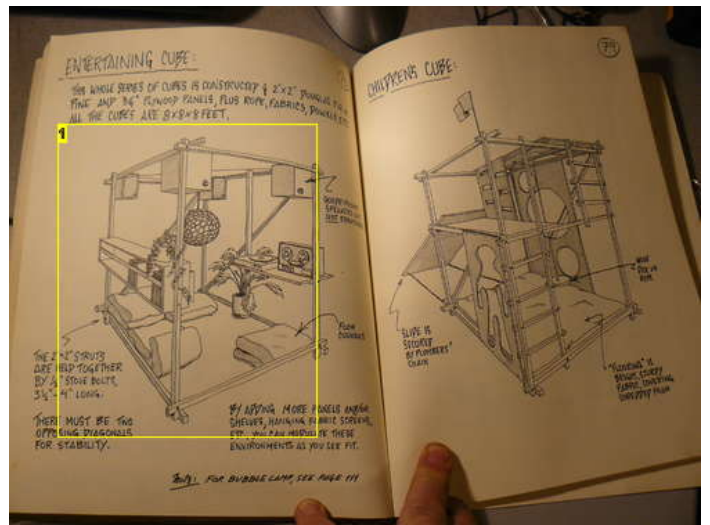 ENTERTAINING CUBE:
THIS WHOLE SERIES OF CUBES IS CONSTRUCTED OF 2"X2" DOUGLAS FIR OR
PINE AND 3/4" PLYWOOD PANELS, PLUS ROPE, FABRICS, DOWELS, ETC.
ALL THE CUBES ARE 8X8X8 FEET.
1
FOAM
CUSHIONS
THE 2"X2" STRUTS
ARE HELD TOGETHER
BY 1/4" STOVE BOLTS,
3 1/2" - 4" LONG.
THERE MUST BE TWO
OPPOSING DIAGONALS
FOR STABILITY.
BY ADDING MORE PANELS AND/OR
SHELVES, HANGING FABRIC SCREENS,
ETC., YOU CAN MODULATE THESE
ENVIRONMENTS AS YOU SEE FIT.
FOR BUBBLE LAMP, SEE PAGE 111
79
CHILDRENS CUBE:
SLIDE IS
SECURED
BY PLUMBERS'
CHAIN
"FLOORING" IS
BRIGHT, STURDY
FABRIC, COVERING
SHREDDED FOAM